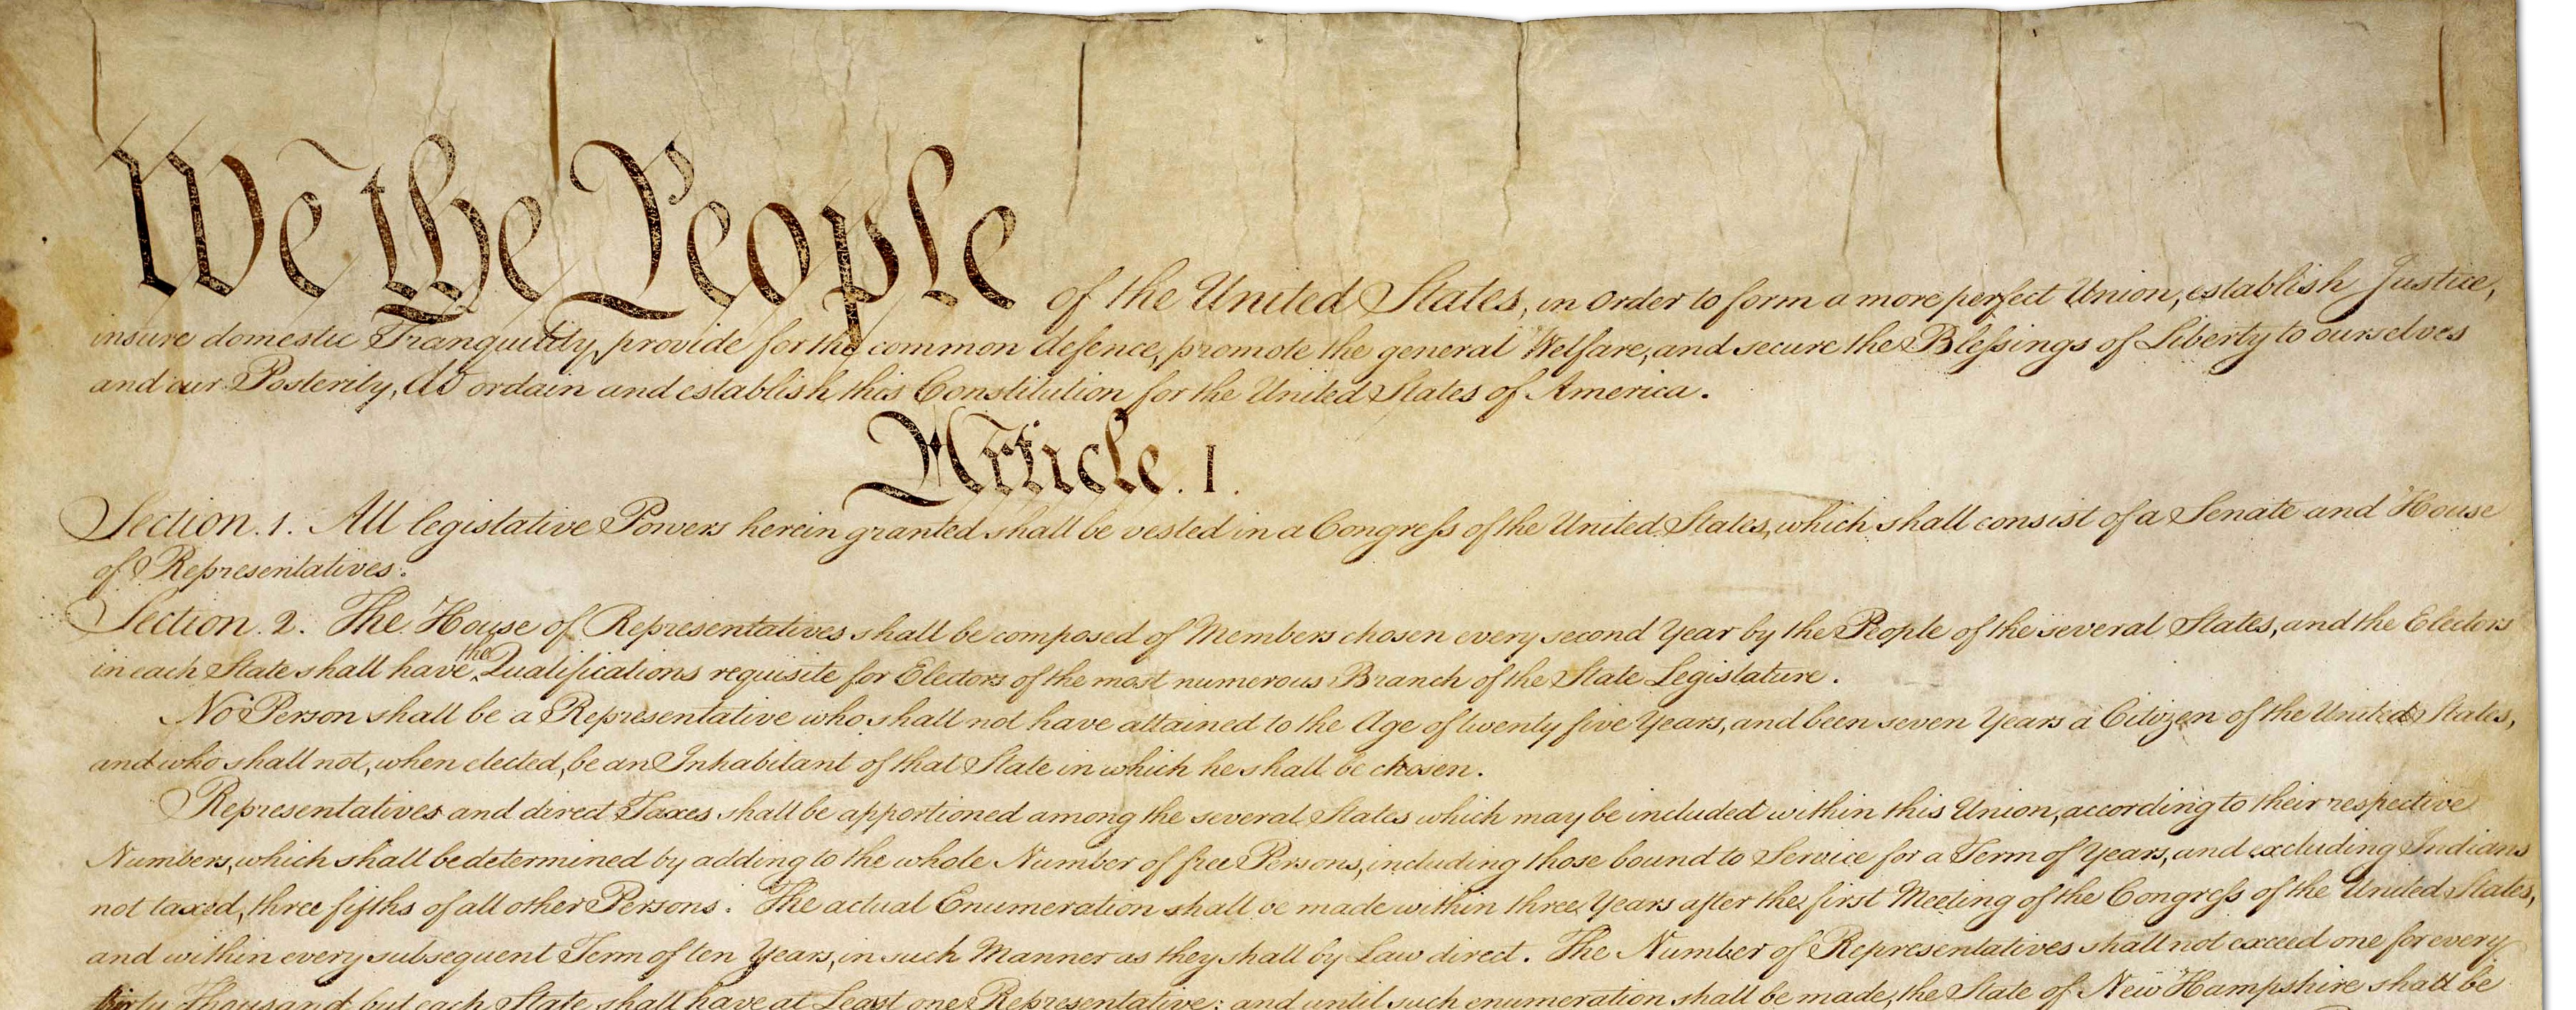 We the People of the United States, in Order to form a more perfect Union, establish Justice,
insure domestic Tranquility, provide for the common defence, promote the general Welfare, and secure the Blessings of Liberty to ourselves
and our Posterity, do ordain and establish this Constitution for the United States of America.
Article. I.
Section. 1. All legislative Powers herein granted shall be vested in a Congress of the United States, which shall consist of a Senate and House
of Representatives.
Section. 2. The House of Representatives shall be composed of Members chosen every second Year by the People of the several States, and the Electors
in each State shall have the Qualifications requisite for Electors of the most numerous Branch of the State Legislature.
No Person shall be a Representative who shall not have attained to the Age of twenty five Years, and been seven Years a Citizen of the United States,
and who shall not, when elected, be an Inhabitant of that State in which he shall be chosen.
Representatives and direct Taxes shall be apportioned among the several States which may be included within this Union, according to their respective
Numbers, which shall be determined by adding to the whole Number of free Persons, including those bound to Service for a Term of Years, and excluding Indians
not taxed, three fifths of all other Persons. The actual Enumeration shall be made within three Years after the first Meeting of the Congress of the United States,
and within every subsequent Term of ten Years, in such Manner as they shall by Law direct. The Number of Representatives shall not exceed one for every
thirty Thousand, but each State shall have at Least one Representative; and until such enumeration shall be made, the State of New Hampshire shall be